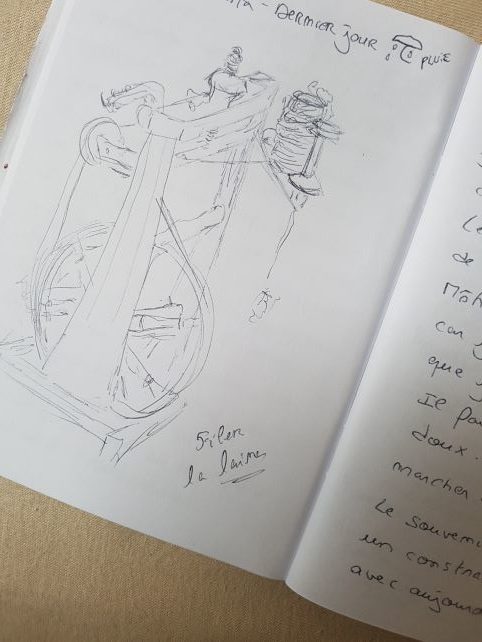 - DERNIER jour pluie
Filer
la laine
Le
de
que j
Il
doux.
marcher
Le souveni
un constra
avec aujour